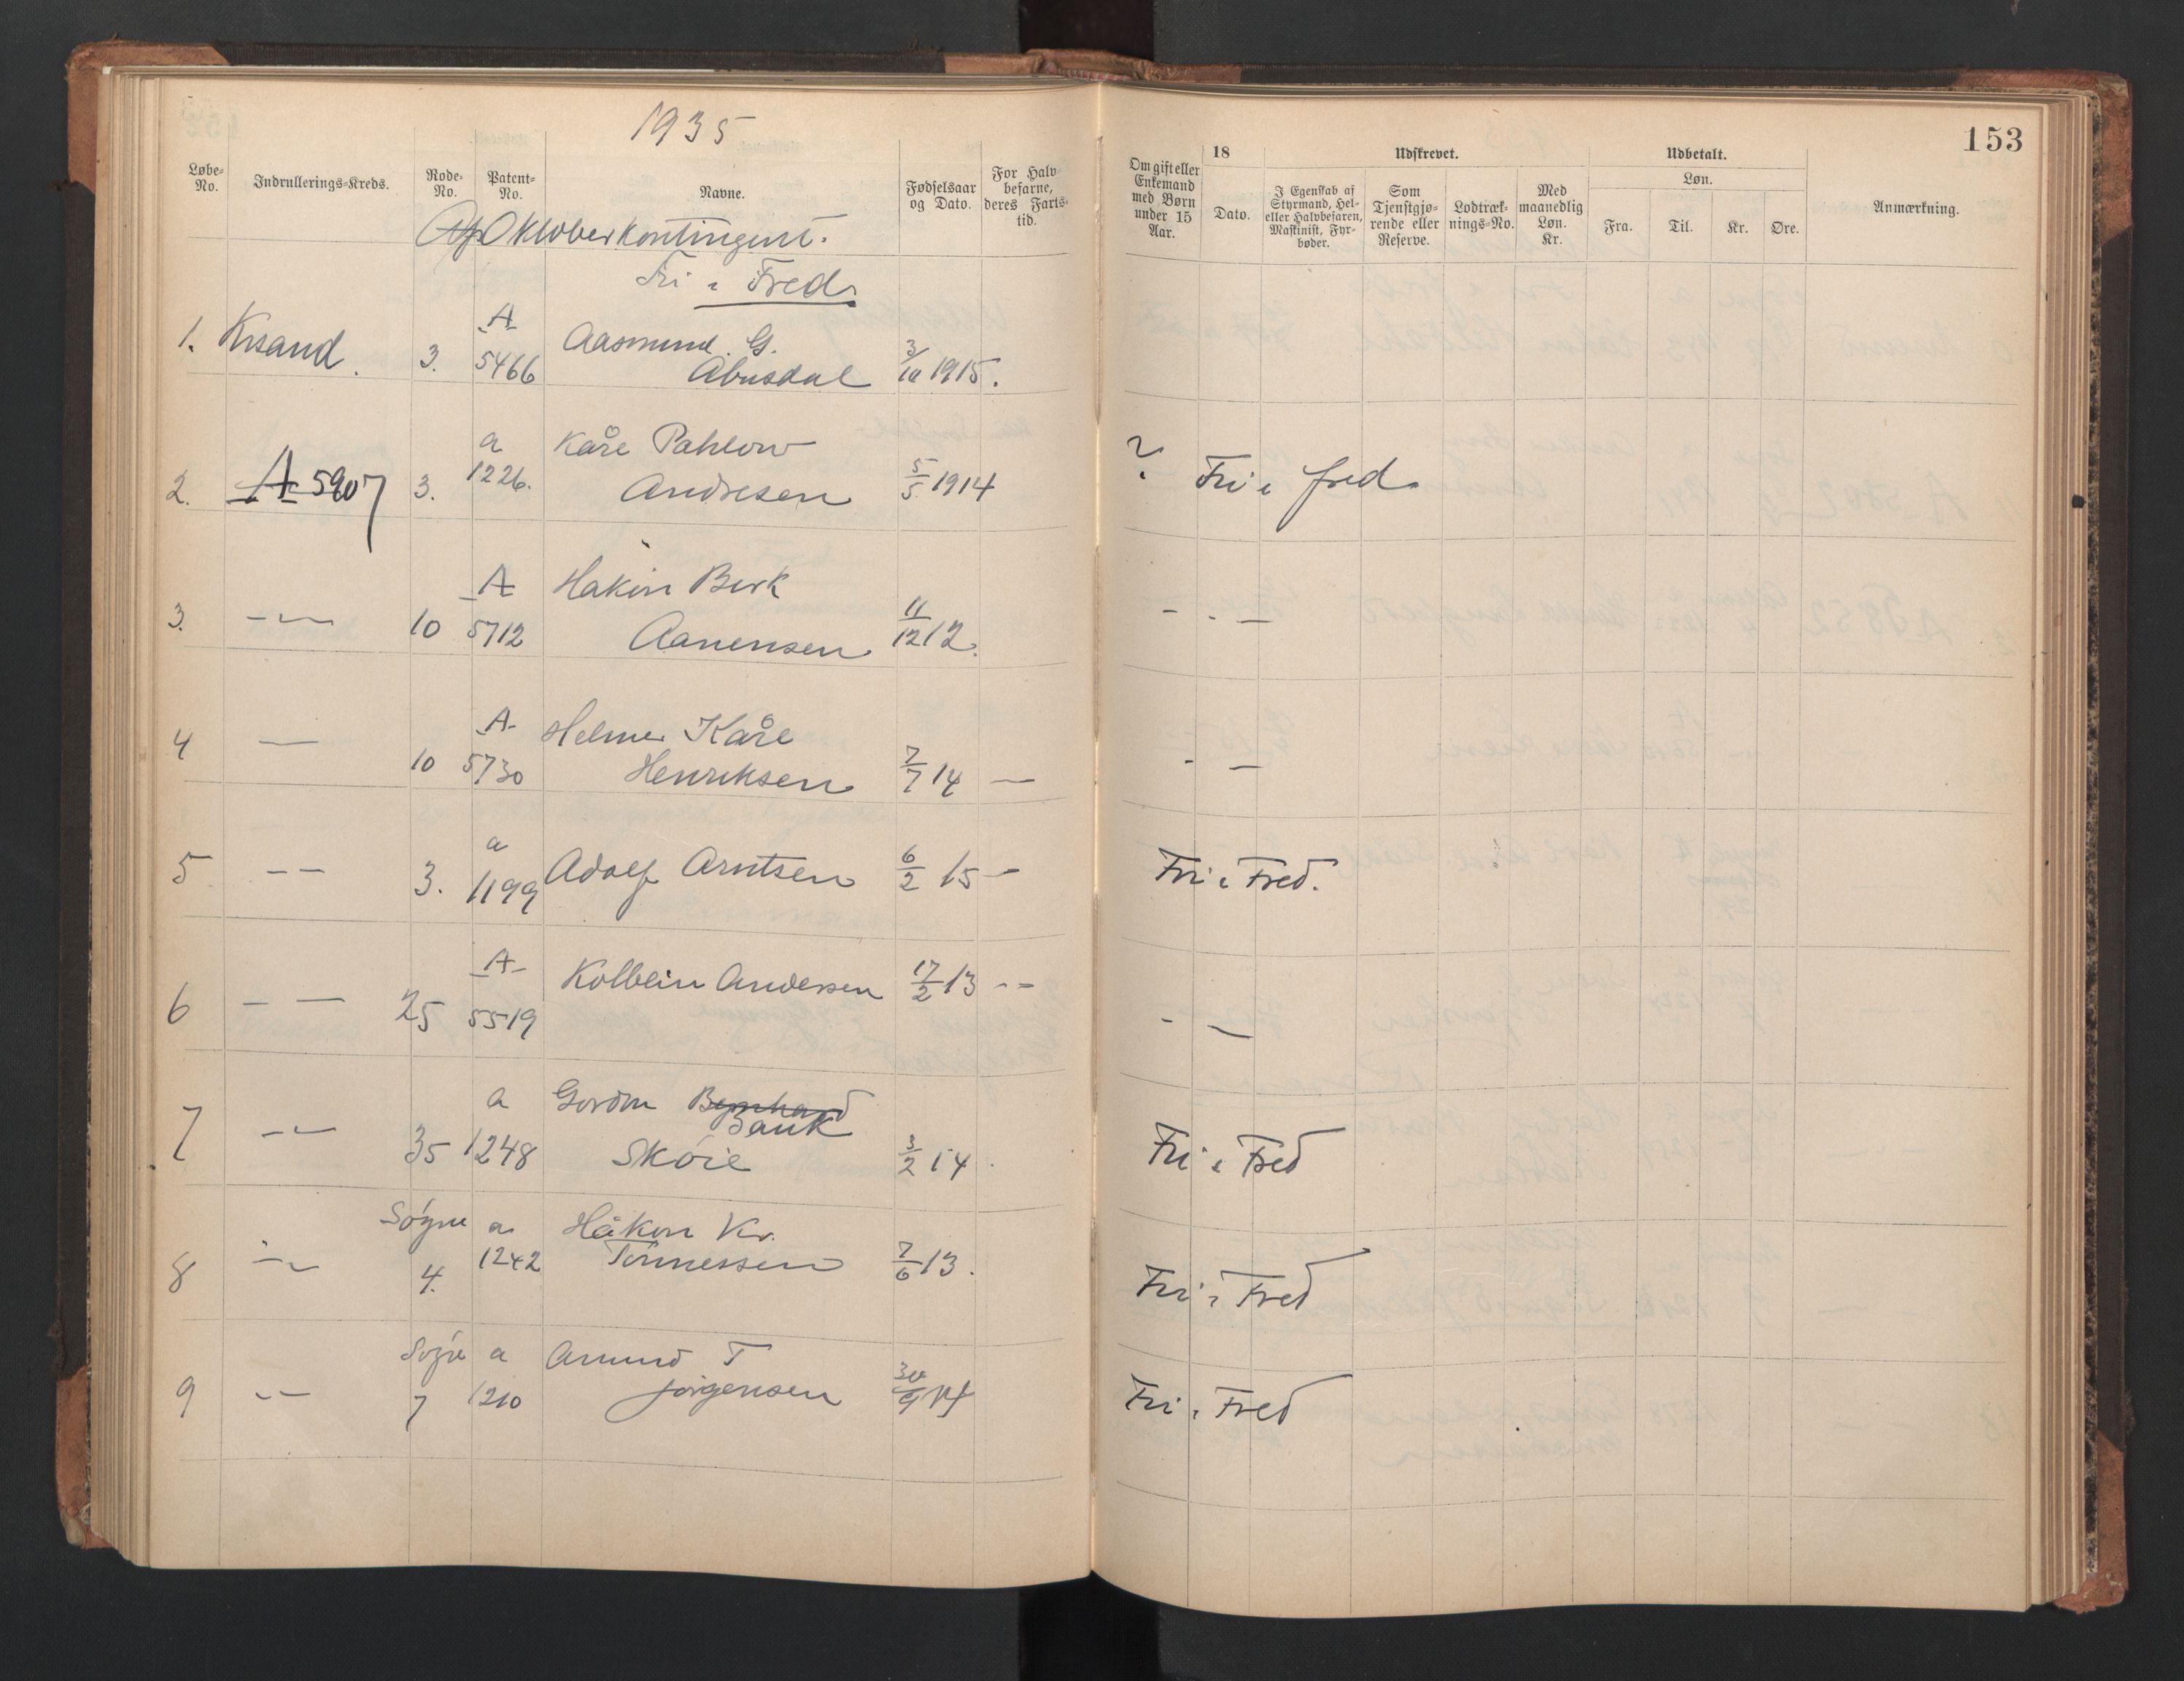 1935
153
Løbe-No.
Indrullerings-Kreds.
Rode-No.
Patent-No.
Navne.
Fødselsaar og Dato.
For Halvbefarne, deres Fartstid.
Om gift eller Enkemand med Børn under 15 Aar.
18
Dato.
Udskrevet.
I Egenskab af Styrmand, Hel- eller Halvbefaren, Maskinist, Fyrbøder.
Som Tjenstgjørende eller Reserve.
Lodtræknings-No.
Med maanedlig Løn. Kr.
Udbetalt.
Løn.
Fra.
Til.
Kr.
Øre.
Anmærkning.
Oktoberkontingent.
Fri i Fred.
1. Krsand. 3. A 5466 Aasmund. G. Abusdal 3/10 1915.
2. A 5907 3. a 1226. Kåre Pahlow Andresen 5/5 1914 ? Fri i fred.
3. — 10 A 5712 Hakon Berk Aanensen 11/12 12. - . —
4 — 10 A 5730 Helmer Kåre Henriksen 7/7 14 — - —
5 — — 3. a 1199 Adolf Arntsen 6/2 15 — Fri i Fred.
6 — — 25 A 5519 Kolbein Andersen 17/2 13 - - - —
7 — 35 a 1248 Gordon Bernhard Bauk Skøie 3/2 14 Fri i Fred
8 — Søgne 4. a 1242 Håkon Kr. Tönnessen 7/6 13. Fri i Fred
9 — Søgne 7 a 1210 Amund T Jørgensen 30/9 14 Fri i Fred